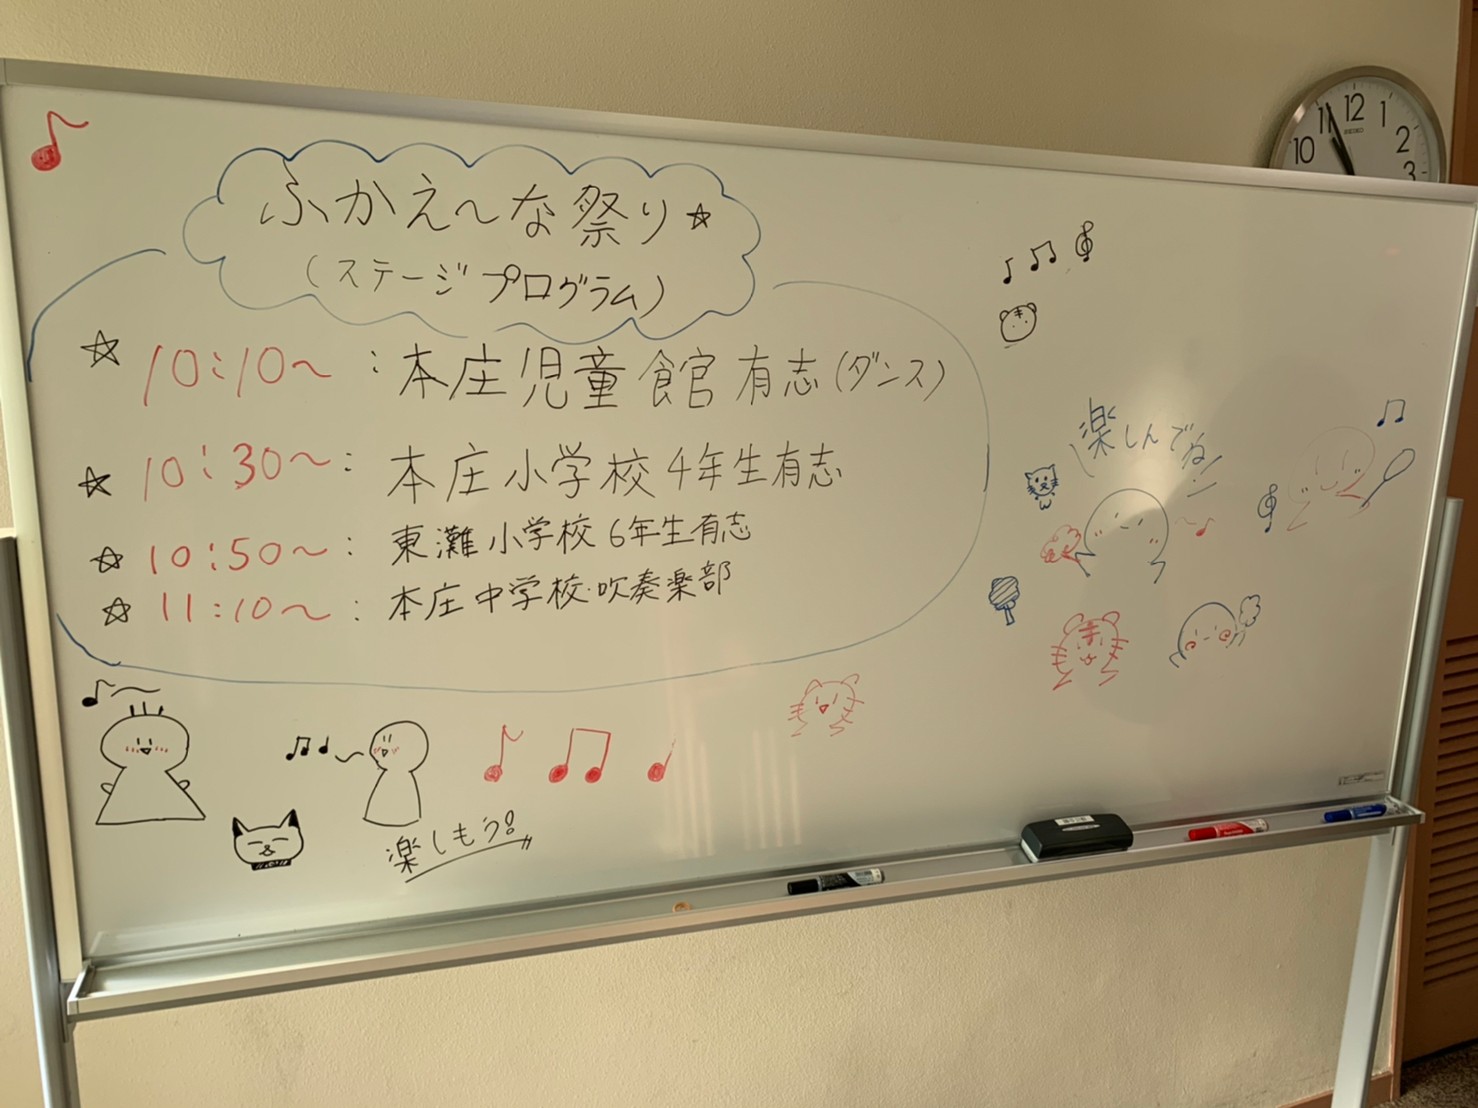 ふかえ～な祭り☆
(ステージプログラム)
☆ 10:10～ : 本庄児童館有志(ダンス)
☆ 10:30～ : 本庄小学校4年生有志
☆ 10:50～ : 東灘小学校6年生有志
☆ 11:10～ : 本庄中学校・吹奏楽部
楽しもう!
楽しんでね!
10 11 12 1 2 3
SEIKO